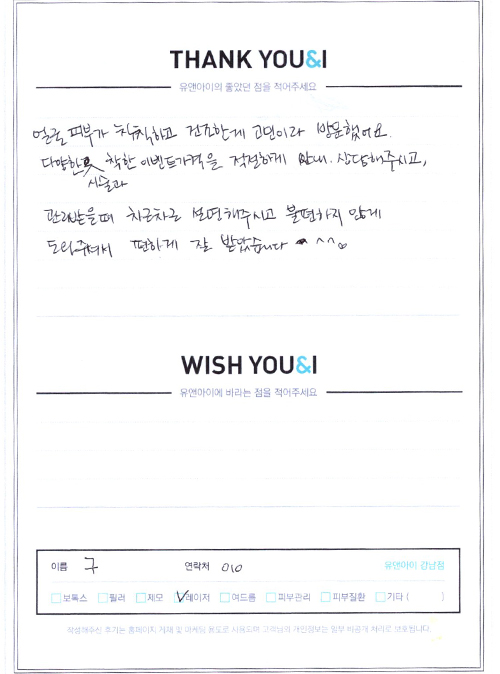 THANK YOU&I
유앤아이의 좋았던 점을 적어주세요
얼굴 피부가 칙칙하고 건조한게 고민이라 방문했어요.
다양한 시술과 착한 이벤트가격을 적절하게 안내. 상담해주시고,
관리받을때 차근차근 설명해주시고 불편하지 않게
도와주셔서 편하게 잘 받았습니다 ^^
WISH YOU&I
유앤아이에 바라는 점을 적어주세요
이름 구 연락처 010 유앤아이 강남점
보톡스 필러 제모 레이저 여드름 피부관리 피부질환 기타 ( )
작성해주신 후기는 홈페이지 게재 및 마케팅 용도로 사용되며 고객님의 개인정보는 일부 비공개 처리로 보호됩니다.